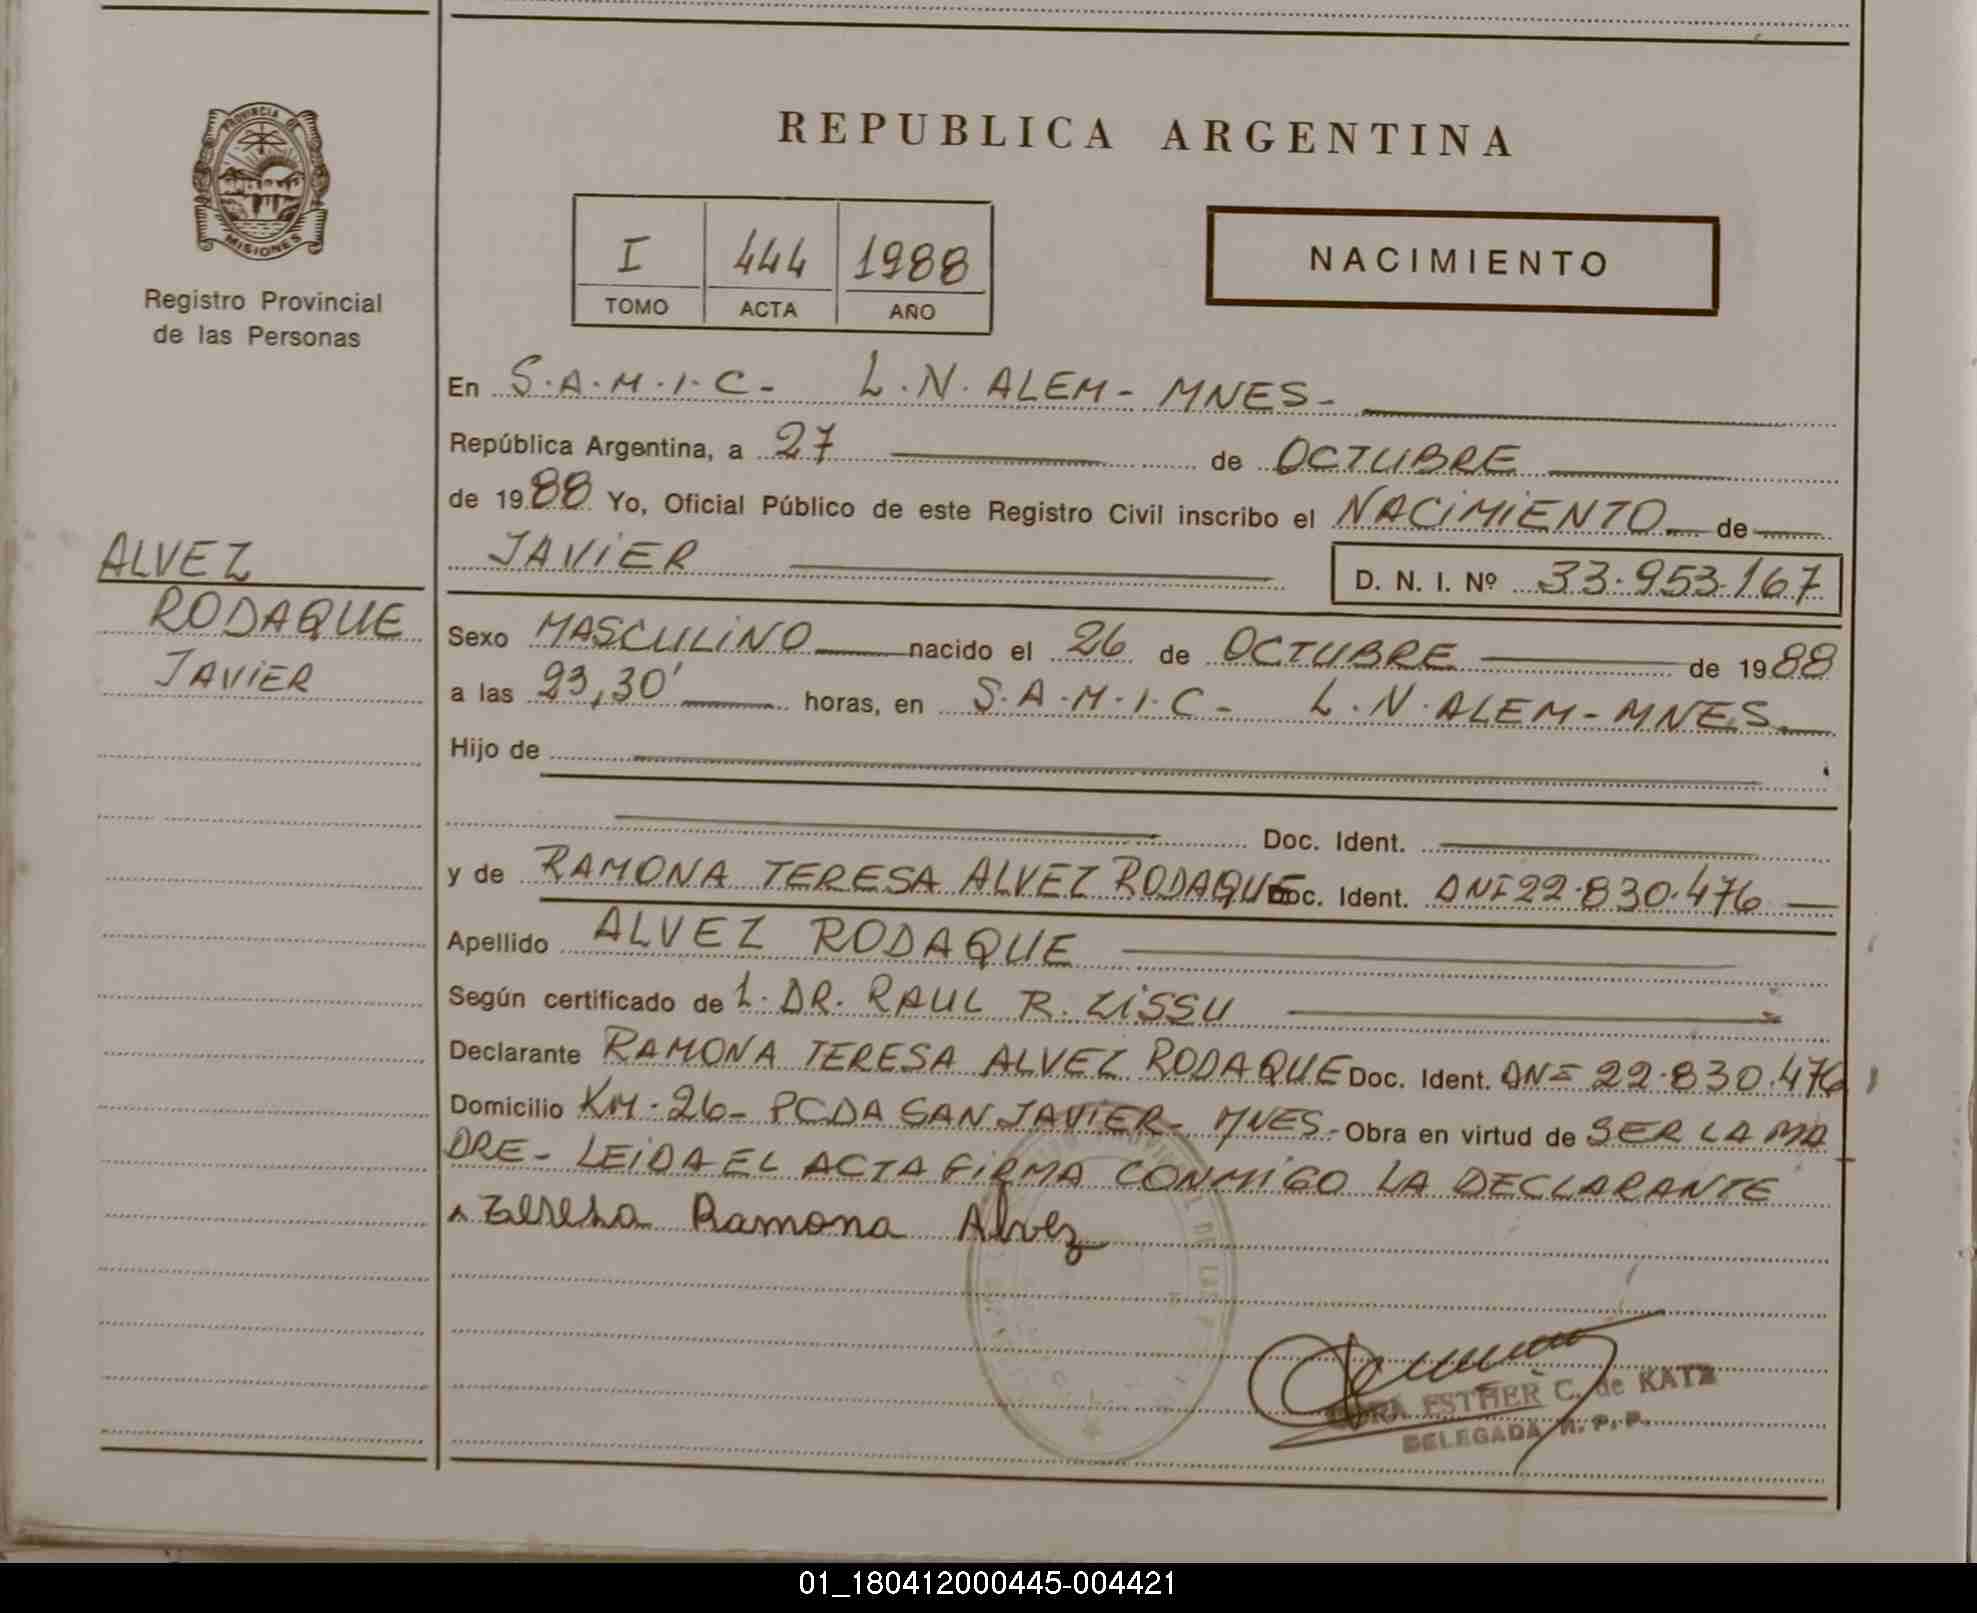 PROVINCIA DE
MISIONES
Registro Provincial
de las Personas
REPUBLICA ARGENTINA
I 444 1988
TOMO ACTA AÑO
NACIMIENTO
En S.A.M.I.C- L.N. ALEM- MNES-
República Argentina, a 27 de OCTUBRE
de 1988 Yo, Oficial Público de este Registro Civil inscribo el NACIMIENTO de
JAVIER D. N. I. Nº 33.953.167
ALVEZ
RODAQUE
JAVIER
Sexo MASCULINO nacido el 26 de OCTUBRE de 1988
a las 23,30' horas, en S.A.M.I.C- L.N. ALEM-MNES
Hijo de
Doc. Ident.
y de RAMONA TERESA ALVEZ RODAQUE Doc. Ident. DNI 22.830.476
Apellido ALVEZ RODAQUE
Según certificado de L. DR. RAUL R. LISSU
Declarante RAMONA TERESA ALVEZ RODAQUE Doc. Ident. DNI 22.830.476
Domicilio KM-26- PCDA SAN JAVIER- MNES- Obra en virtud de SER LA MA
DRE- LEIDA EL ACTA FIRMA CONMIGO LA DECLARANTE
Teresa Ramona Alvez
ESTHER C. de KATZ
DELEGADA R. P. P.
01_180412000445-004421